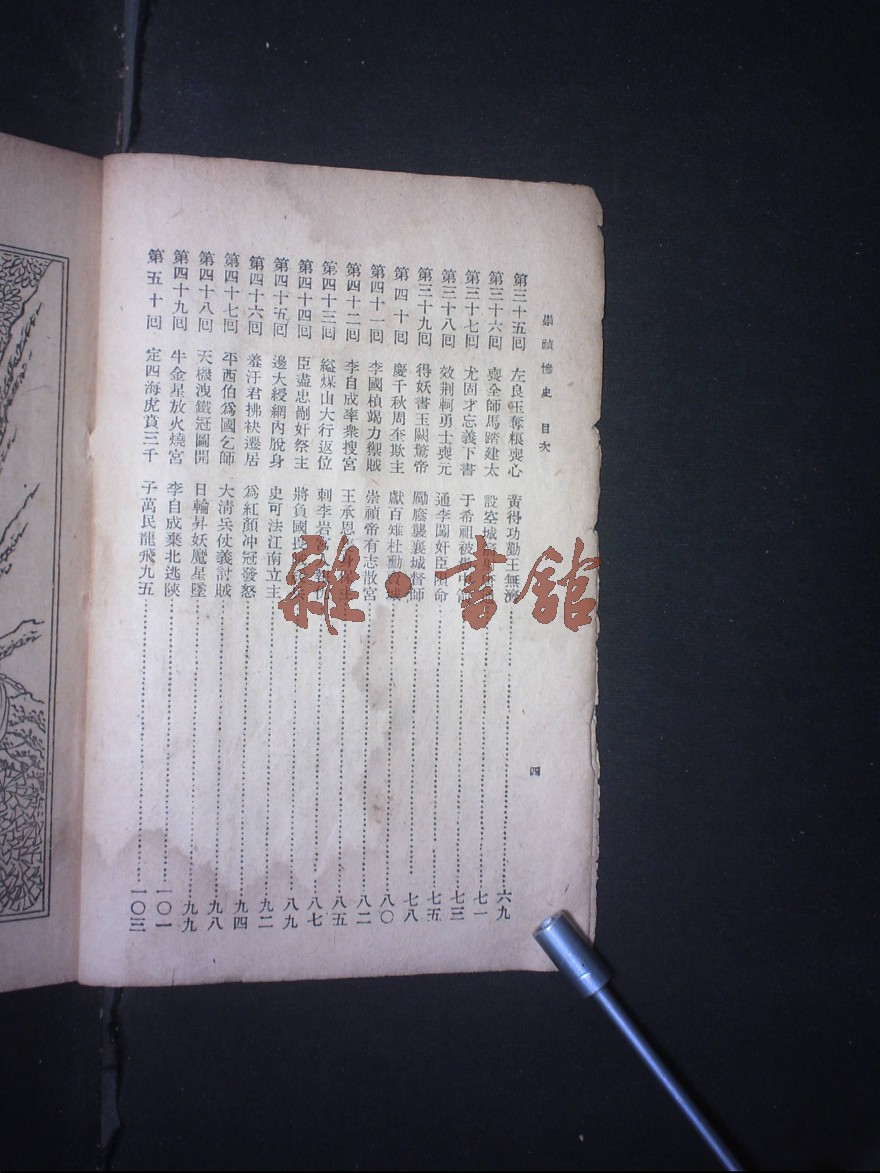 崇禎慘史 目次
四
第三十五囘 左良玉奪糧喪心 黃得功勤王無濟 六九
第三十六囘 喪全師馬踏建太 設空城 七一
第三十七囘 尤固才忘義下書 于希祖被 七三
第三十八囘 效荆軻勇士喪元 通李闖奸臣 命 七五
第三十九囘 得妖書玉闕驚帝 勵廢襲襄城督師 七八
第四十囘 慶千秋周奎欺主 獻百雉杜勳 八〇
第四十一囘 李國楨竭力禦賊 崇禎帝有志散宮 八二
第四十二囘 李自成率衆搜宮 王承恩 主 八五
第四十三囘 縊煤山大行返位 刺李岩 八七
第四十四囘 臣盡忠剮奸祭主 將負國 八九
第四十五囘 邊大綬網內脫身 史可法江南立主 九二
第四十六囘 羞汙君拂袂遷居 爲紅顏冲冠發怒 九四
第四十七囘 平西伯爲國乞師 大淸兵仗義討賊 九八
第四十八囘 天機洩鐵冠圖開 日輪昇妖魔星墜 九九
第四十九囘 牛金星放火燒宮 李自成棄北逃陝 一〇一
第五十囘 定四海虎賁三千 子萬民龍飛九五 一〇三
雜·書館